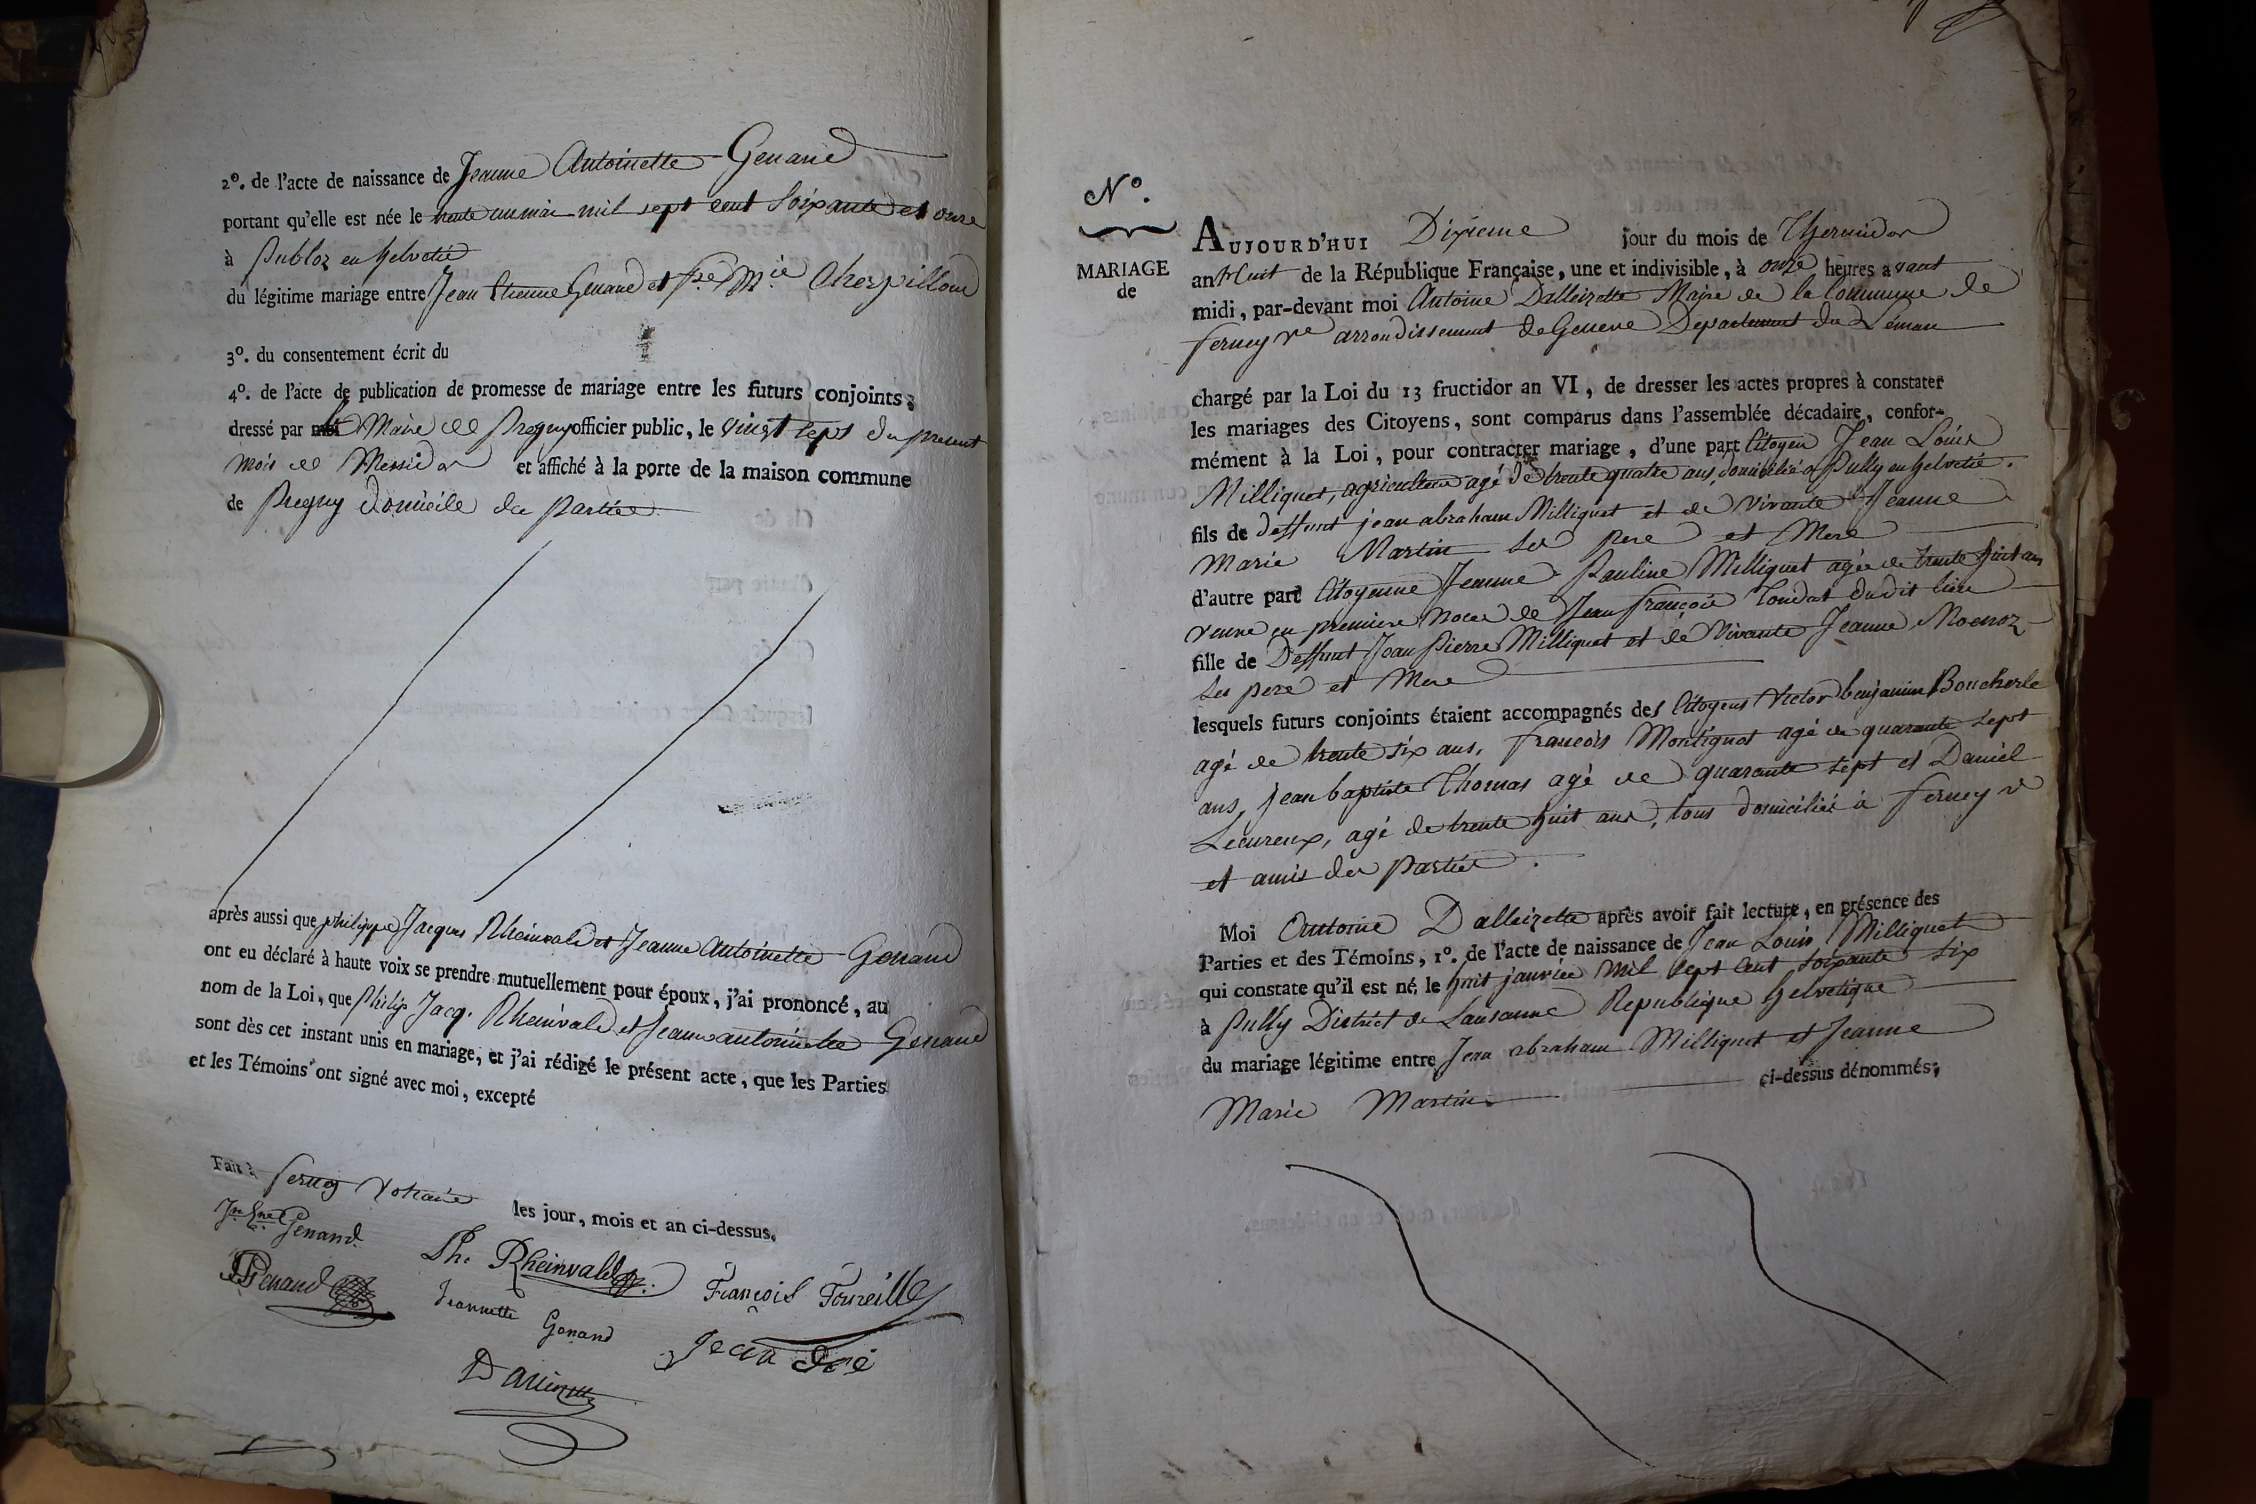 2º. de l'acte de naissance de Jeanne Antoinette Genand
portant qu'elle est née le trente un mai mil sept cent soixante et onze
à Publoz en helvetie
du légitime mariage entre Jean Etienne Genand et fse Mie Cherpilloud
3º. du consentement écrit du
4º. de l'acte de publication de promesse de mariage entre les futurs conjoints;
dressé par le Maire de Pregny officier public, le vingt sept du present
mois de Messidor et affiché à la porte de la maison commune
de Pregny domicile des Parties
après aussi que philippe Jacques Rheinvald et Jeanne Antoinette Genand
ont eu déclaré à haute voix se prendre mutuellement pour époux, j'ai prononcé, au
nom de la Loi, que Philip. Jacq. Rheinvald et Jeanne antoinette Genand
sont dès cet instant unis en mariage, et j'ai rédigé le présent acte, que les Parties
et les Témoins ont signé avec moi, excepté
Fait à ferney Voltaire les jour, mois et an ci-dessus.
Jn Ene Genand
Ph. Rheinvald
François Foureille
Genand
Jeannette Genand
Jean
Dalleizette
Nº.
MARIAGE
de
AUJOURD'HUI Dixieme jour du mois de Thermidor
an huit de la République Française, une et indivisible, à onze heures avant
midi, par-devant moi Antoine Dalleizette Maire de la Commune de
ferney Ve arrondissement de Geneve Departement du Léman
chargé par la Loi du 13 fructidor an VI, de dresser les actes propres à constater
les mariages des Citoyens, sont comparus dans l'assemblée décadaire, confor-
mément à la Loi, pour contracter mariage, d'une part Citoyen Jean Louis
Milliquet, agriculteur agé de trente quatre ans, domicilié a Pully en helvetie.
fils de deffunt jean abraham Milliquet et de vivante Jeanne
Marie Martin ses pere et Mere
d'autre part Citoyenne Jeanne Pauline Milliquet agée de trente huit ans
veuve en premiere Noces de Jean françois Loudat dudit lieu
fille de Deffunt Jean Pierre Milliquet et de vivante Jeanne Moennoz
ses pere et Mere
lesquels futurs conjoints étaient accompagnés des Citoyens Victor benjamin Boucherle
agé de trente six ans, francois Montignot agé de quarante sept
ans, jean baptiste Thomas agé de quarante sept et Daniel
Lecureux, agé de trente huit ans, tous domiciliés à ferney v
et amis des Parties.
Moi Antoine Dalleizette après avoir fait lecture, en présence des
Parties et des Témoins, 1º. de l'acte de naissance de Jean Louis Milliquet
qui constate qu'il est né, le huit janvier mil sept cent soixante six
à Pully District de Lausanne Republique helvetique
du mariage légitime entre Jean abraham Milliquet et Jeanne
Marie Martin ci-dessus dénommés;